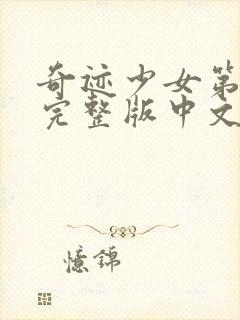 奇迹少女第
完整版中文
憶錦